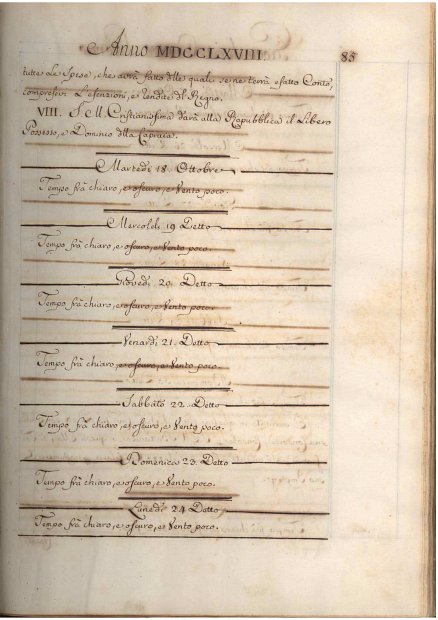 Anno MDCCLXVIII. 85
tutte le Spese, che avrà fatto dlle quali se ne terrà esatto Conto,
compresevi L'esenzioni, e rendite dl Regno.
VIII. S. M. Cristianissima darà alla Repubblica il Libero
Possesso, e Dominio dlla Capraia.
Martedì 18. Ottobre
Tempo frà chiaro, e oscuro, e Vento poco.
Mercoldì 19 Detto
Tempo frà chiaro, e oscuro, e Vento poco.
Giovedì 20. Detto
Tempo frà chiaro, e oscuro, e Vento poco.
Venardì 21. Detto
Tempo frà chiaro, e oscuro, e Vento poco.
Sabbato 22. Detto
Tempo frà chiaro, e oscuro, e Vento poco.
Domenica 23. Detto
Tempo frà chiaro, e oscuro, e Vento poco.
Lunedì 24 Detto
Tempo frà chiaro, e oscuro, e Vento poco.